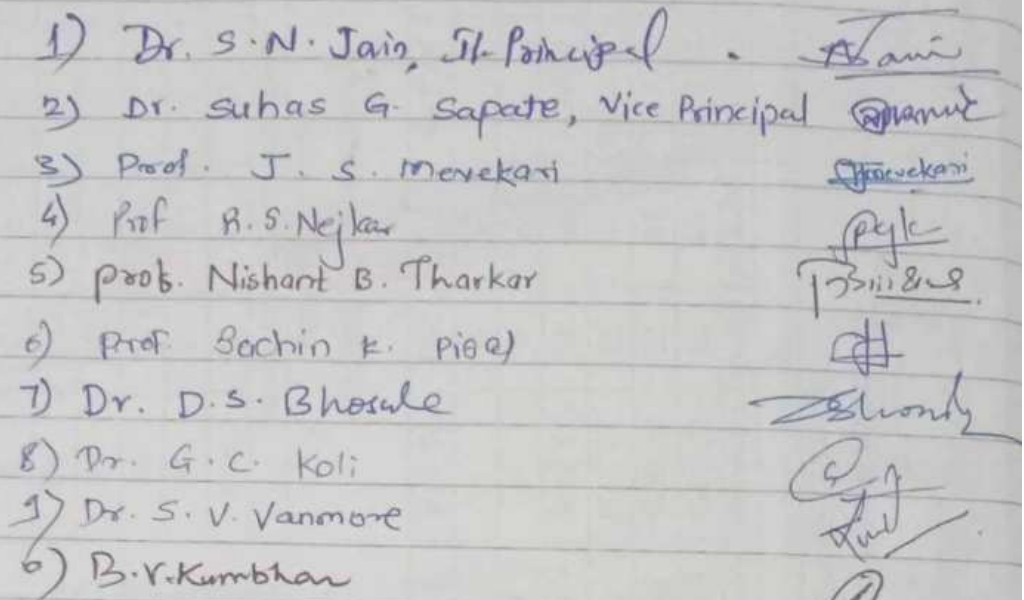 1) Dr. S.N. Jain, I/c Principal
2) Dr. Suhas G. Sapate, Vice Principal
3) Prof. J. S. Mevekari
4) Prof R.S. Nejkar
5) Prof. Nishant B. Tharkar
6) Prof Sachin K.
7) Dr. D.S. Bhosale
8) Dr. G.C. Koli
9) Dr. S.V. Vanmore
0) B.V. Kumbhar